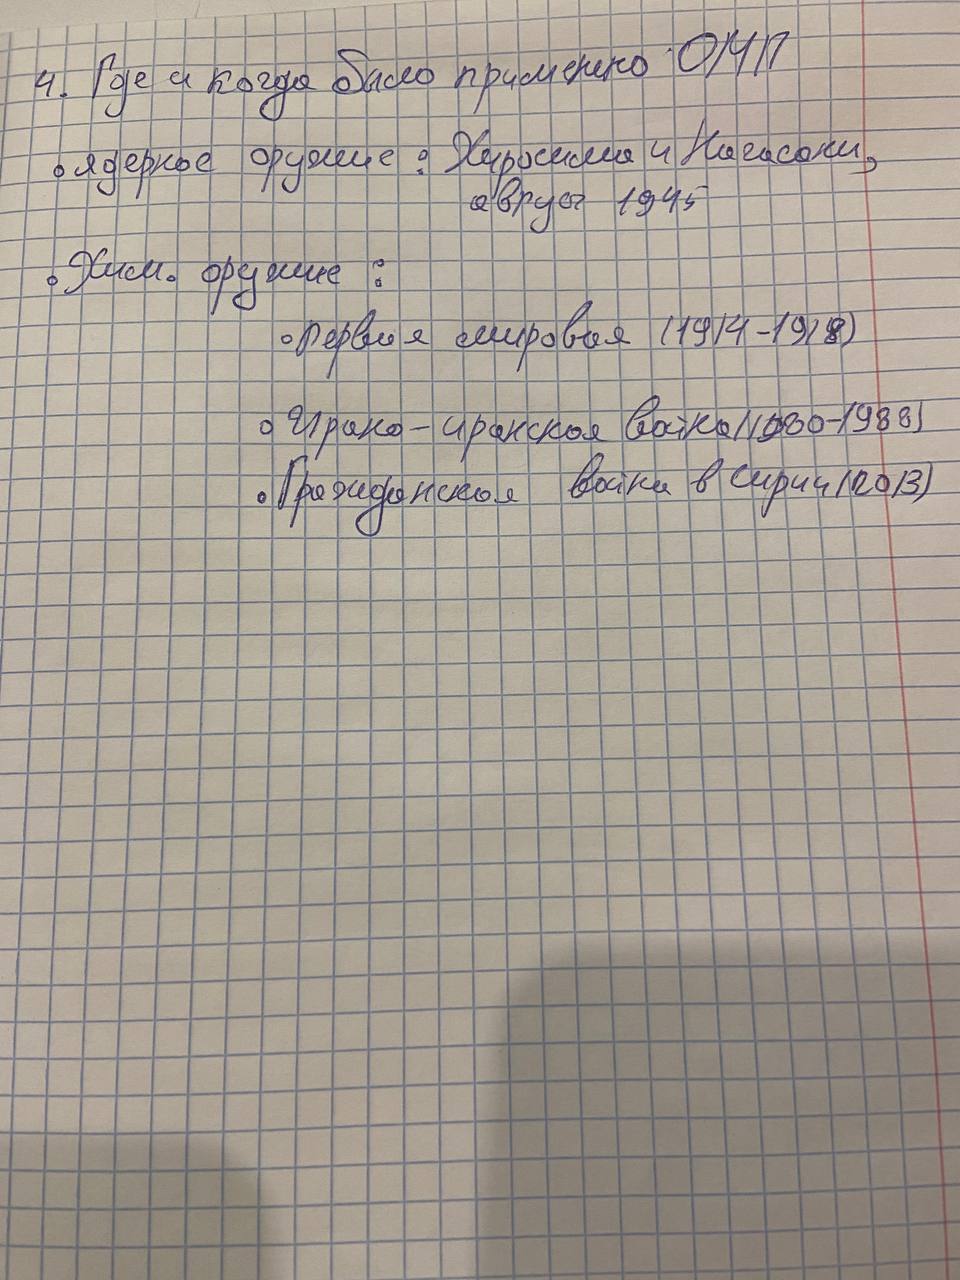 4. Где и когда было применено ОМП
• ядерное оружие: Хиросима и Нагасаки,
август 1945
• Хим. оружие:
• первая мировая (1914-1918)
• Ирано-иракская война (1980-1988)
• Гражданская война в Сирии (2013)